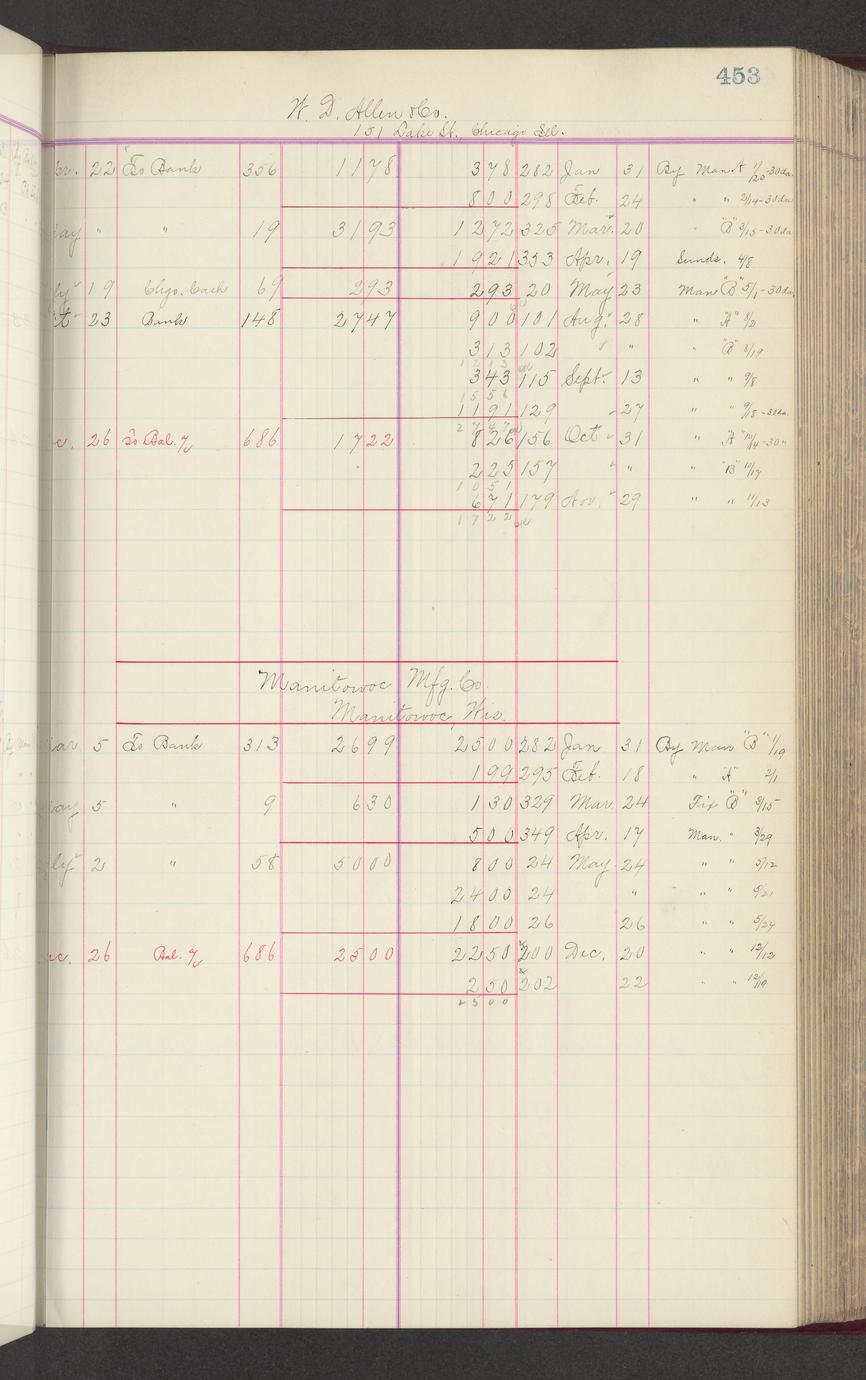 453
W. D. Allen & Co.
151 Lake St., Chicago Ill.
22 To Bank 356 1178 378 282 Jan 31 By Man "A" 1/20-30da
800 298 Feb. 24 " " 2/14-30da
ay " " 19 3193 1272 325 Mar. 20 " "B" 3/15-30da
1921 353 Apr. 19 Sunds. 4/8
ly 19 Chgo. Cash 69 293 293 20 May 23 Man "B" 5/1-30da
t 23 Bank 148 2747 900 101 Aug. 28 " "A" 8/2
313 102 " " " "B" 8/19
1213
343 115 Sept. 13 " " 9/8
1556
1191 129 " 27 " " 9/18-30da.
2747
c. 26 To Bal. 686 1722 826 156 Oct 31 " "A" 10/14-30"
225 157 " " " "B" 10/17
1051
671 179 Nov. 29 " " 11/13
1722
Manitowoc Mfg. Co.
Manitowoc, Wis.
ar 5 To Bank 313 2699 2500 282 Jan 31 By Man "B" 1/19
199 295 Feb. 18 " "A" 2/1
ay 5 " 9 630 130 329 Mar. 24 Fix "B" 3/15
500 349 Apr. 17 Man. " 3/29
ly 2 " 58 5000 800 24 May 24 " " 5/12
2400 24 " " " 5/21
1800 26 26 " " 5/24
c. 26 Bal. 686 2500 2250 200 Dec. 20 " " 12/12
250 202 22 " " 12/19
2500